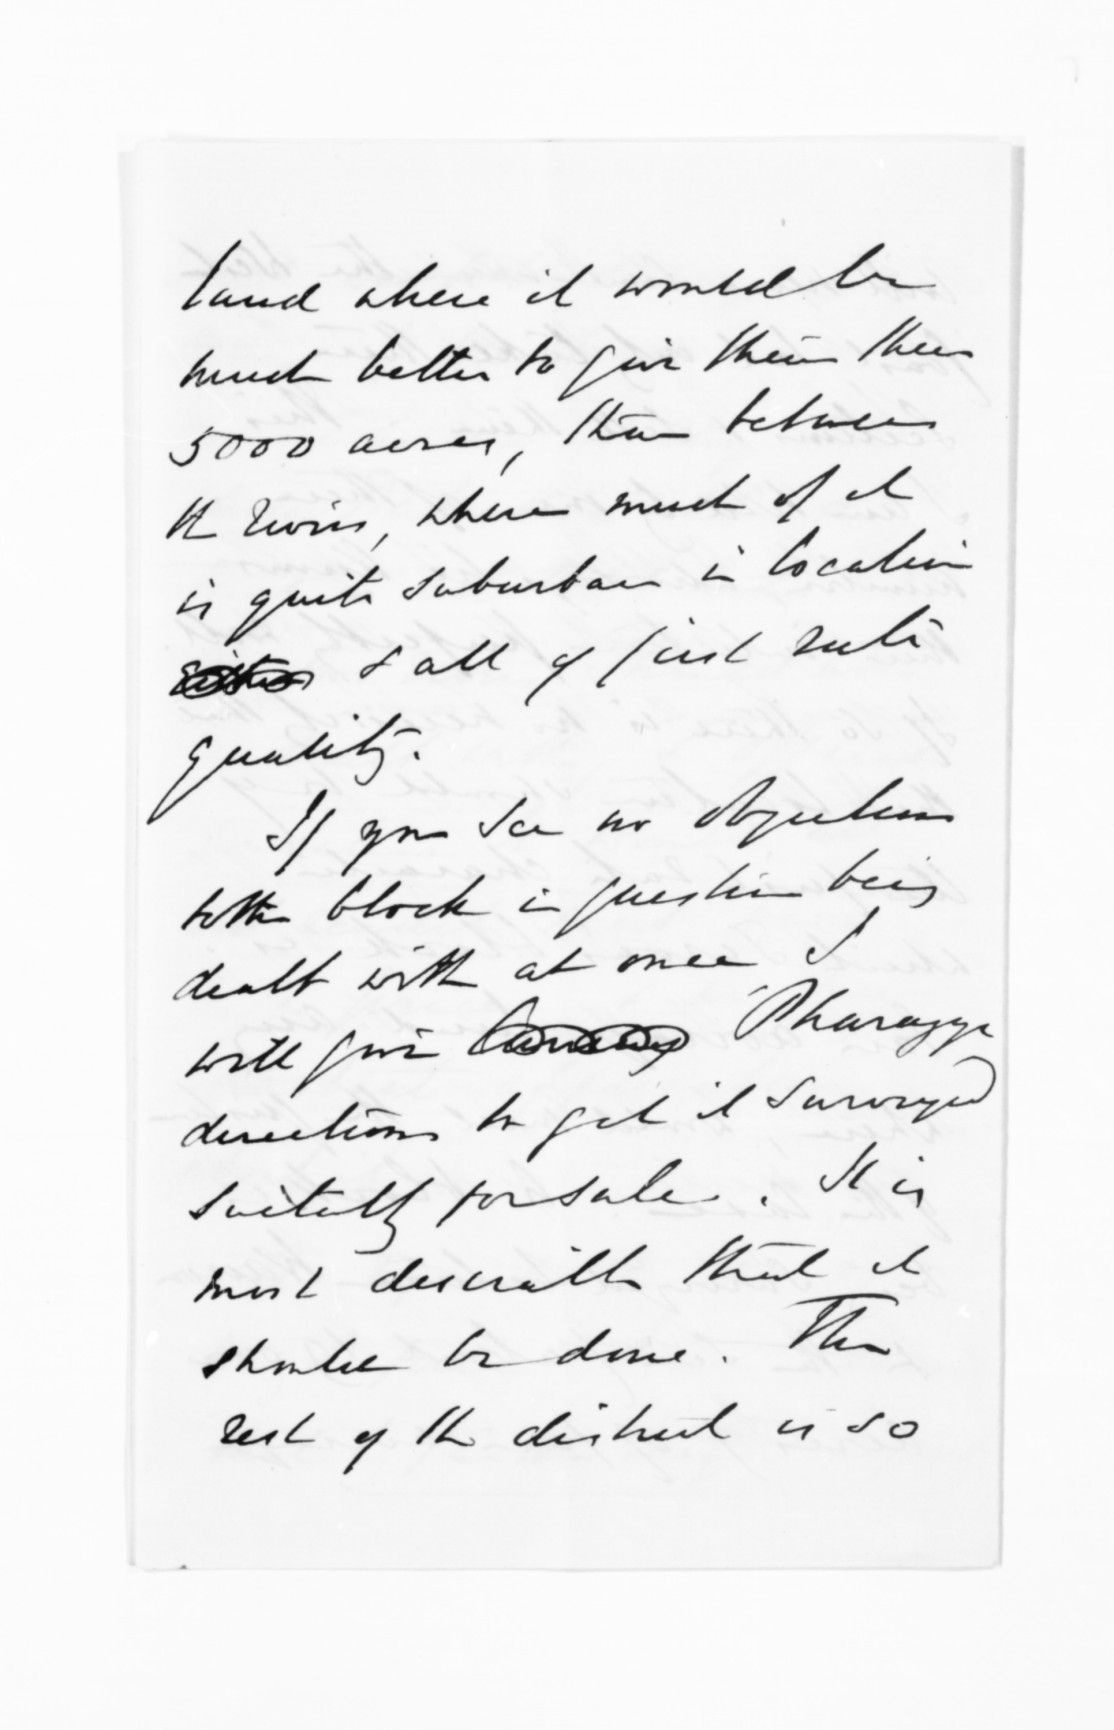 land where it would be
much better to give them their
5000 acres, than between
the rivers, where much of it
is quite suburban in location
& all of first rate
quality.
If you see no objection
to the block in question being
dealt with at once I
will give Pharazyn
directions to get it surveyed
suitably for sale. It is
most desirable that it
should be done. The
rest of the district is so